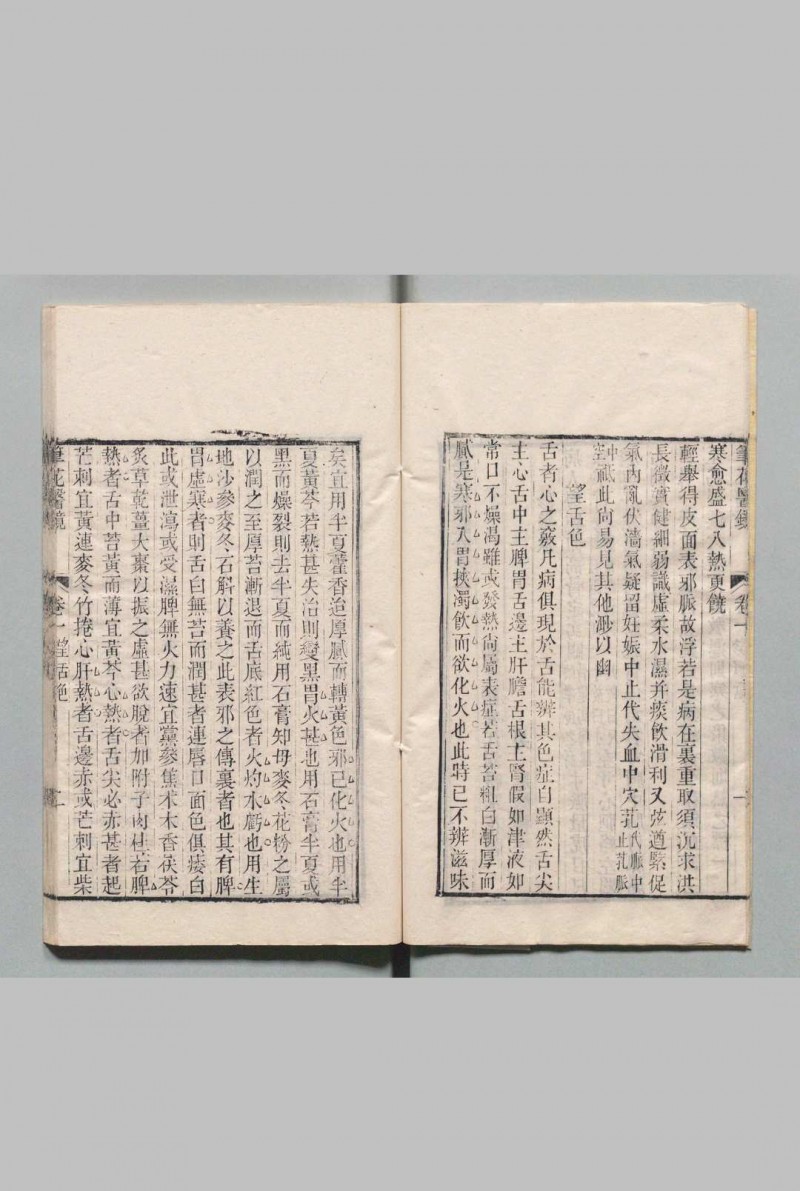 筆花醫鏡 卷一 一
寒愈盛七八熱更饒
輕舉得皮面表邪脈故浮若是病在裏重取須沉求洪
長徵實健細弱識虛柔水濕并痰飲滑利又弦遒緊促
氣內亂伏濇氣疑留妊娠中止代失血中穴芤代脈中止芤脈
中空祗此尚易見其他渺以幽
望舌色
舌者心之竅凡病俱現於舌能辨其色症自顯然舌尖
主心舌中主脾胃舌邊主肝膽舌根主腎假如津液如
常口不燥渴雖或發熱尚屬表症若舌苔粗白漸厚而
膩是寒邪入胃挾濁飲而欲化火也此時已不辨滋味
矣宜用半夏藿香迨厚膩而轉黃色邪已化火也用半
夏黃芩若熱甚失治則變黑胃火甚也用石膏半夏或
黑而燥裂則去半夏而純用石膏知母麥冬花粉之屬
以潤之至厚苔漸退而舌底紅色者火灼水虧也用生
地沙參麥冬石斛以養之此表邪之傳裏者也其有脾
胃虛寒者則舌白無苔而潤甚者連唇口面色俱痿白
此或泄瀉或受濕脾無火力速宜黨參焦朮木香茯苓
炙草乾薑大棗以振之虛甚欲脫者加附子肉桂若脾
熱者舌中苔黃而薄宜黃芩心熱者舌尖必赤甚者起
芒刺宜黃連麥冬竹捲心肝熱者舌邊赤或芒刺宜柴
筆花醫鏡 卷一 望舌色